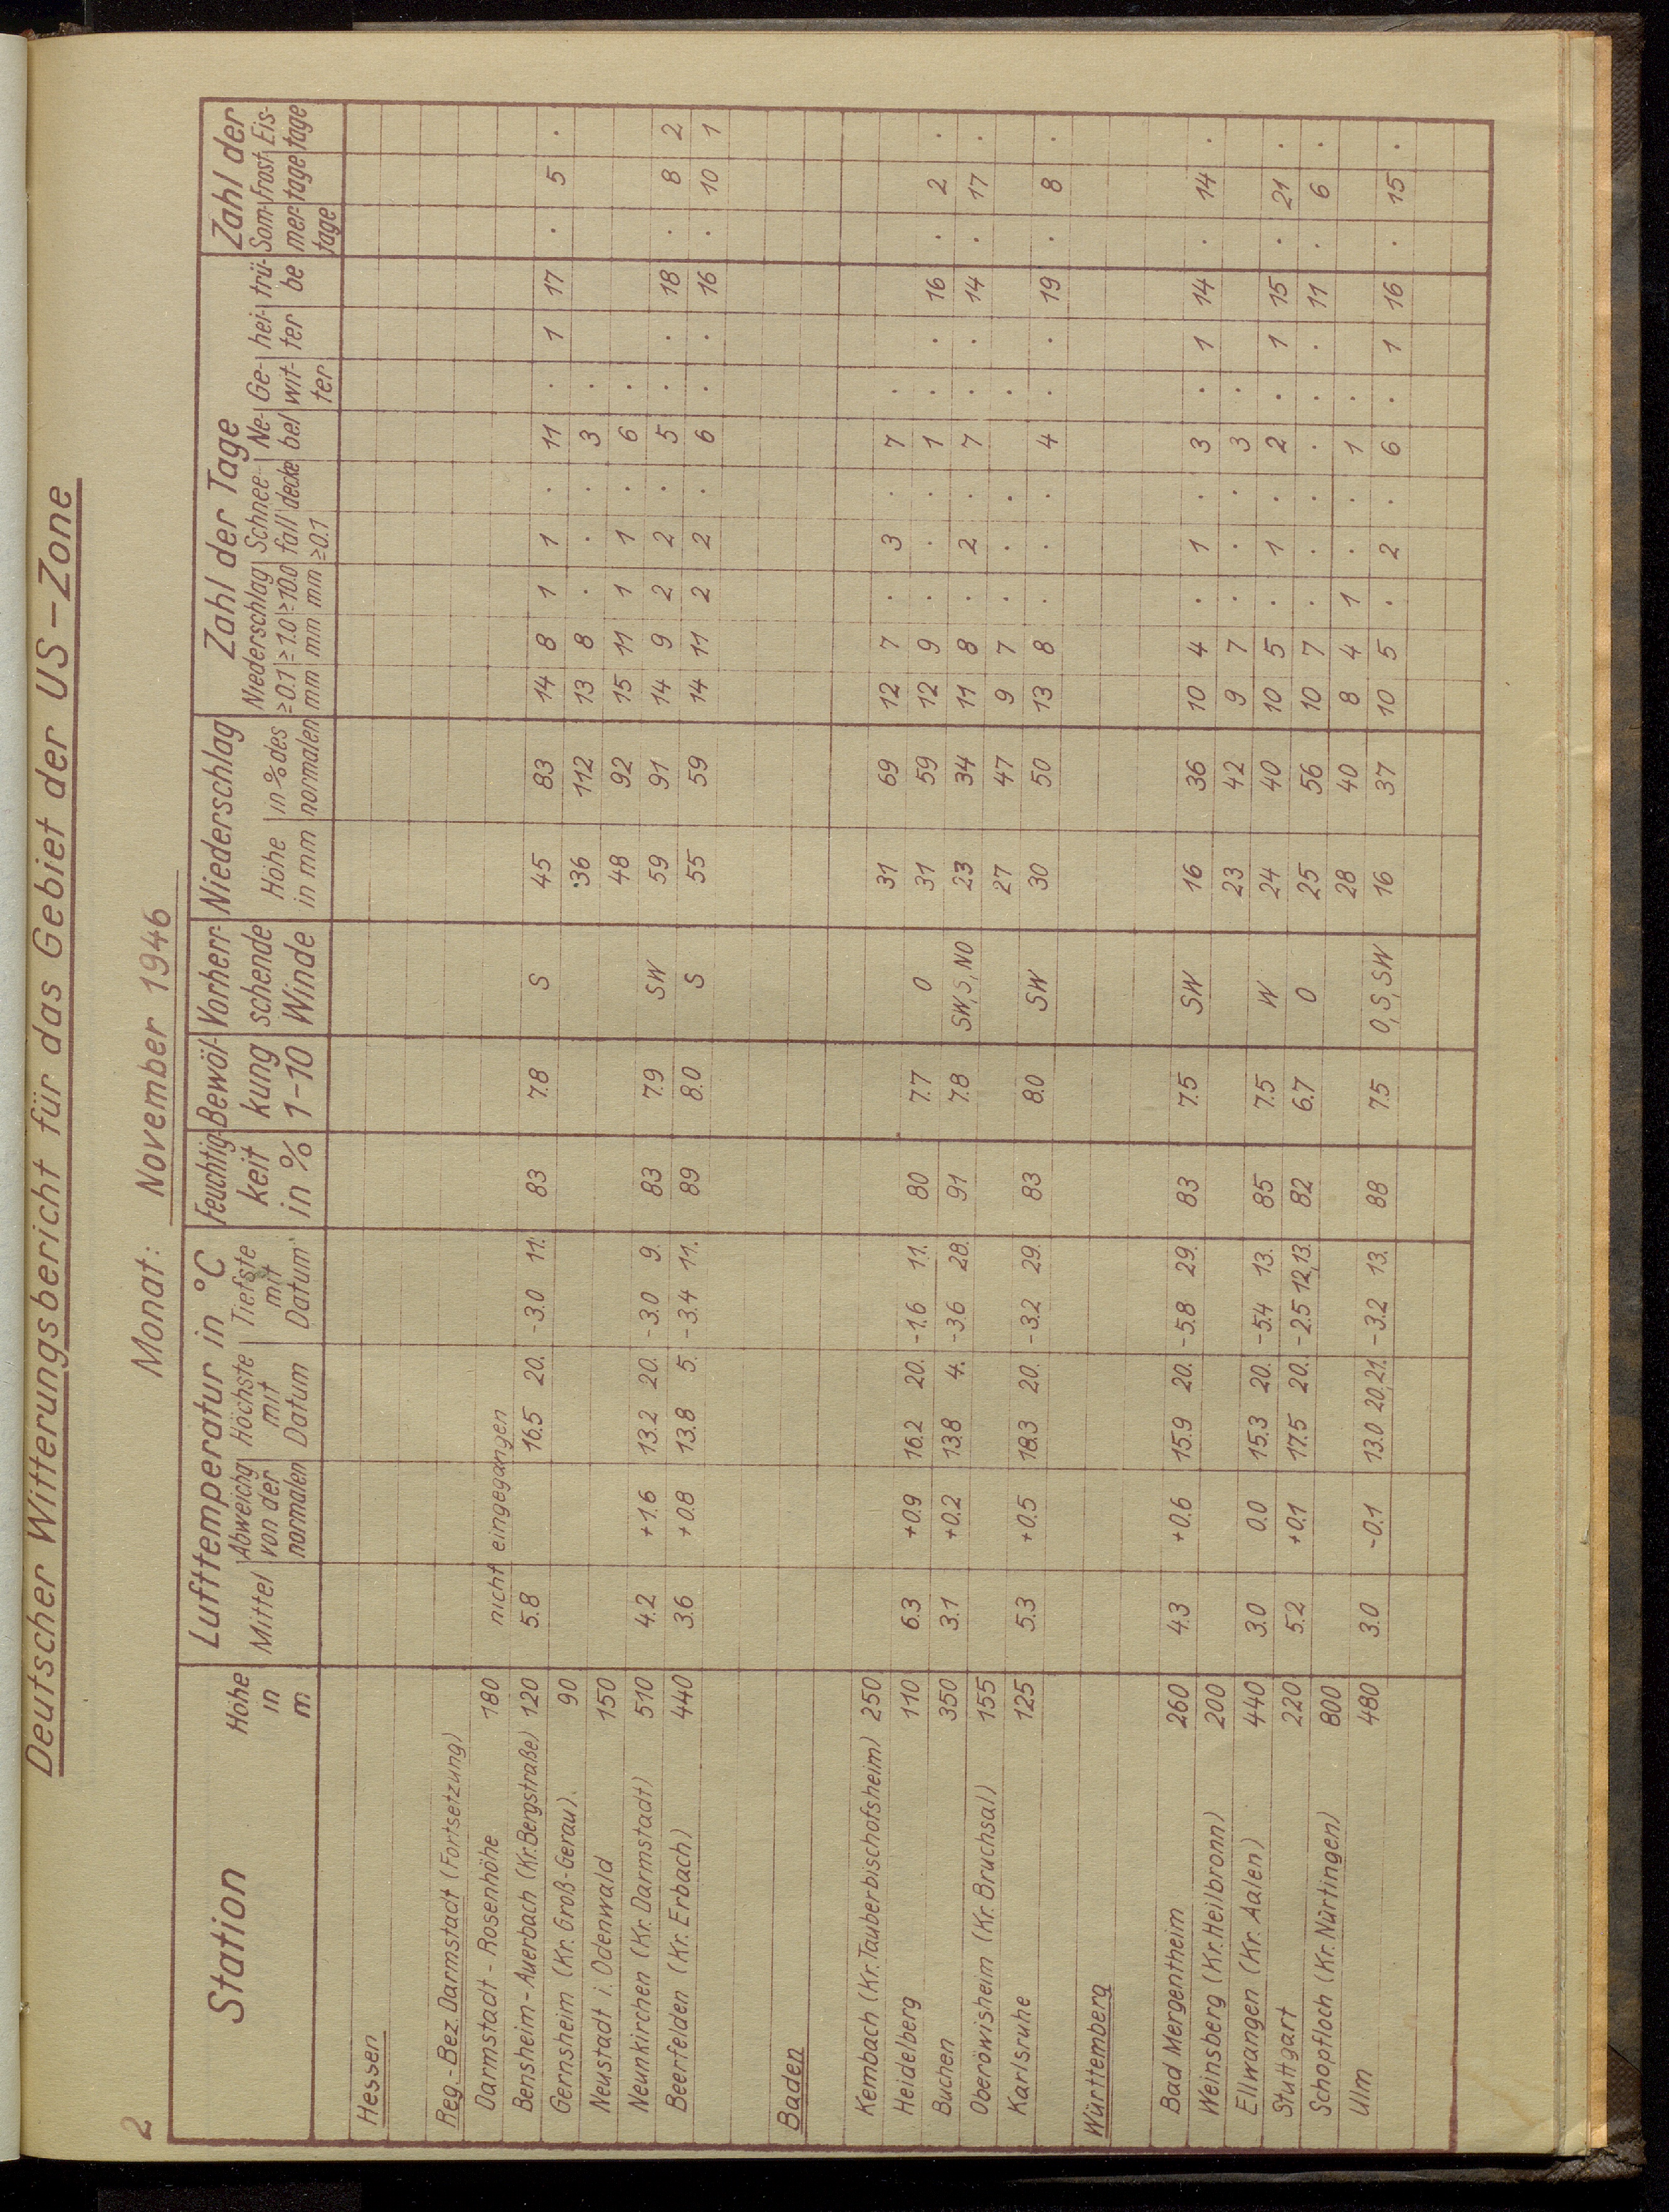 2
Deutscher Witterungsbericht für das Gebiet der US-Zone
Monat: November 1946
Station | Höhe in m | Lufttemperatur in °C | Feuchtig- keit in % | Bewöl- kung 1-10 | Vorherr- schende Winde | Niederschlag | Zahl der Tage | Zahl der
Mittel | Abweichg von der normalen | Höchste mit Datum | Tiefste mit Datum | Höhe in mm | in % des normalen | Niederschlag ≥0.1 mm | ≥1.0 mm | ≥10.0 mm | Schnee- fall ≥0.1 | decke | Ne- bel | Ge- wit- ter | hei- ter | trü- be | Som- mer- tage | Frost- tage | Eis- tage
Hessen
Reg.-Bez. Darmstadt (Fortsetzung)
Darmstadt - Rosenhöhe 180 nicht eingegangen
Bensheim-Auerbach (Kr. Bergstraße) 120 5.8 16.5 20. -3.0 11. 83 7.8 S 45 83 14 8 1 1 . 11 . 1 17 . 5 .
Gernsheim (Kr. Groß-Gerau). 90 36 112 13 8 . . . 3 .
Neustadt i. Odenwald 150 48 92 15 11 1 1 . 6 .
Neunkirchen (Kr. Darmstadt) 510 4.2 +1.6 13.2 20. -3.0 9. 83 7.9 SW 59 91 14 9 2 2 . 5 . . 18 . 8 2
Beerfelden (Kr. Erbach) 440 3.6 +0.8 13.8 5. -3.4 11. 89 8.0 S 55 59 14 11 2 2 . 6 . . 16 . 10 1
Baden
Kembach (Kr. Tauberbischofsheim) 250 31 69 12 7 . 3 . 7 .
Heidelberg 110 6.3 +0.9 16.2 20. -1.6 11. 80 7.7 O 31 59 12 9 . . . 1 . . 16 . 2 .
Buchen 350 3.1 +0.2 13.8 4. -3.6 28. 91 7.8 SW, S, NO 23 34 11 8 . 2 . 7 . . 14 . 17 .
Oberöwisheim (Kr. Bruchsal) 155 27 47 9 7 . . . .
Karlsruhe 125 5.3 +0.5 18.3 20. -3.2 29. 83 8.0 SW 30 50 13 8 . . . 4 . . 19 . 8 .
Württemberg
Bad Mergentheim 260 4.3 +0.6 15.9 20. -5.8 29. 83 7.5 SW 16 36 10 4 . 1 . 3 . 1 14 . 14 .
Weinsberg (Kr. Heilbronn) 200 23 42 9 7 . . . 3 .
Ellwangen (Kr. Aalen) 440 3.0 0.0 15.3 20. -5.4 13. 85 7.5 W 24 40 10 5 . 1 . 2 . 1 15 . 21 .
Stuttgart 220 5.2 +0.1 17.5 20. -2.5 12,13. 82 6.7 O 25 56 10 7 . . . . . . 11 . 6 .
Schopfloch (Kr. Nürtingen) 800 28 40 8 4 1 . . 1 .
Ulm 480 3.0 -0.1 13.0 20,21. -3.2 13. 88 7.5 O, S, SW 16 37 10 5 . 2 . 6 . 1 16 . 15 .